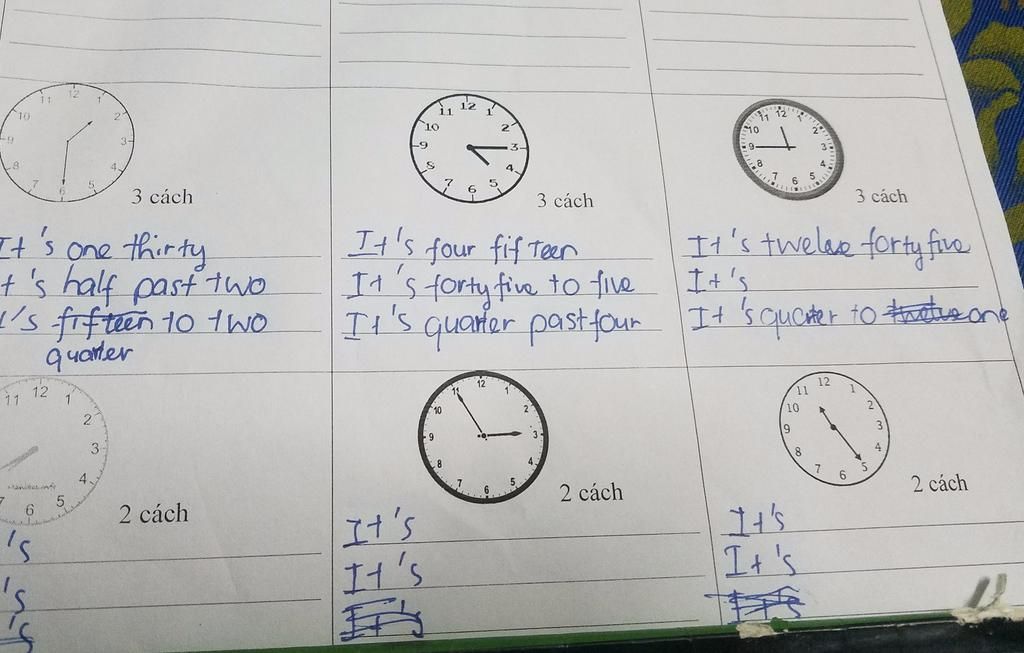 12 1 2 3 4 5 6 7 8 9 10 11
3 cách
12 1 2 3 4 5 6 7 8 9 10 11
3 cách
12 1 2 3 4 5 6 7 8 9 10 11
3 cách
It's one thirty
t's half past two
's fifteen to two
quarter
It's four fifteen
It's forty five to five
It's quarter past four
It's twelve forty five
It's
It's quarter to twelve one
11 12 1 2 3 4 5 6 7
2 cách
12 1 2 3 4 5 6 7 8 9 10 11
2 cách
12 1 2 3 4 5 6 7 8 9 10 11
2 cách
's
's
's
It's
It's
It's
It's
It's
It's